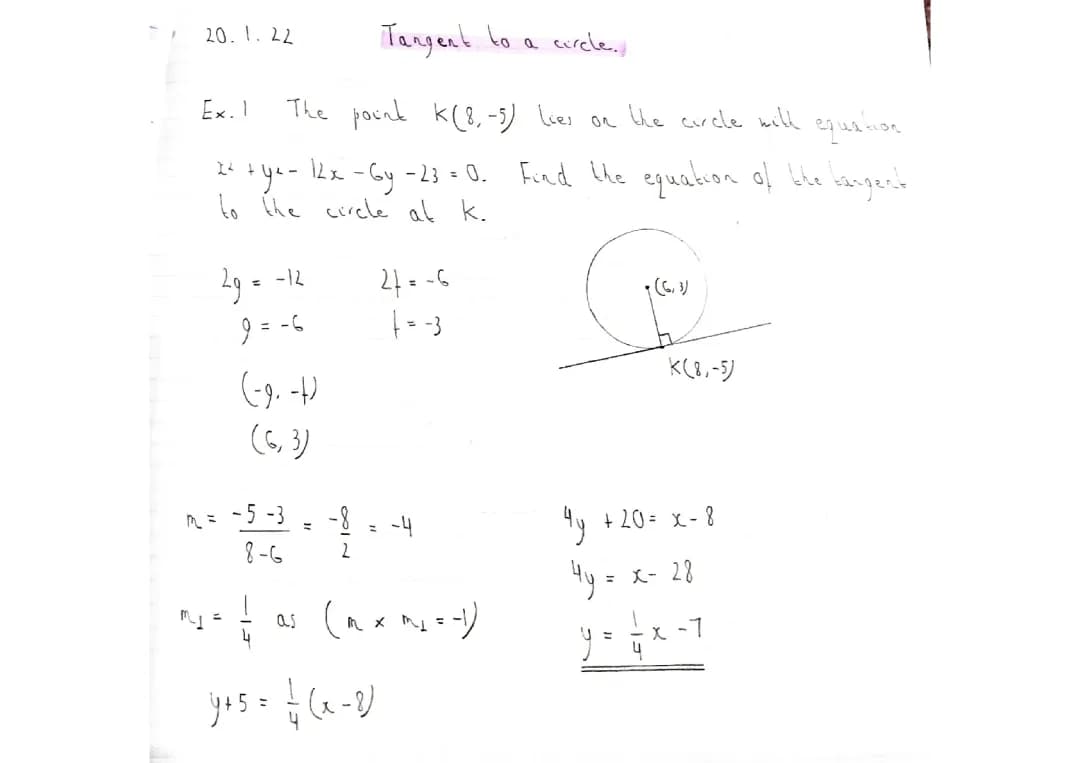 20.1.22 Tangent to a circle.
Ex.1 The point K(8,-5) lies on the circle with equation
x² + y² - 12x - 6y - 23 = 0. Find the equation of the tangent
to the circle at K.
2g = -12 2f = -6
g = -6 f = -3
(-g, -f)
(6, 3)
(6, 3)
K(8,-5)
m = (-5 - 3)/(8 - 6) = -8/2 = -4
m⊥ = 1/4 as (m × m⊥ = -1)
y + 5 = 1/4 (x - 8)
4y + 20 = x - 8
4y = x - 28
y = 1/4 x - 7